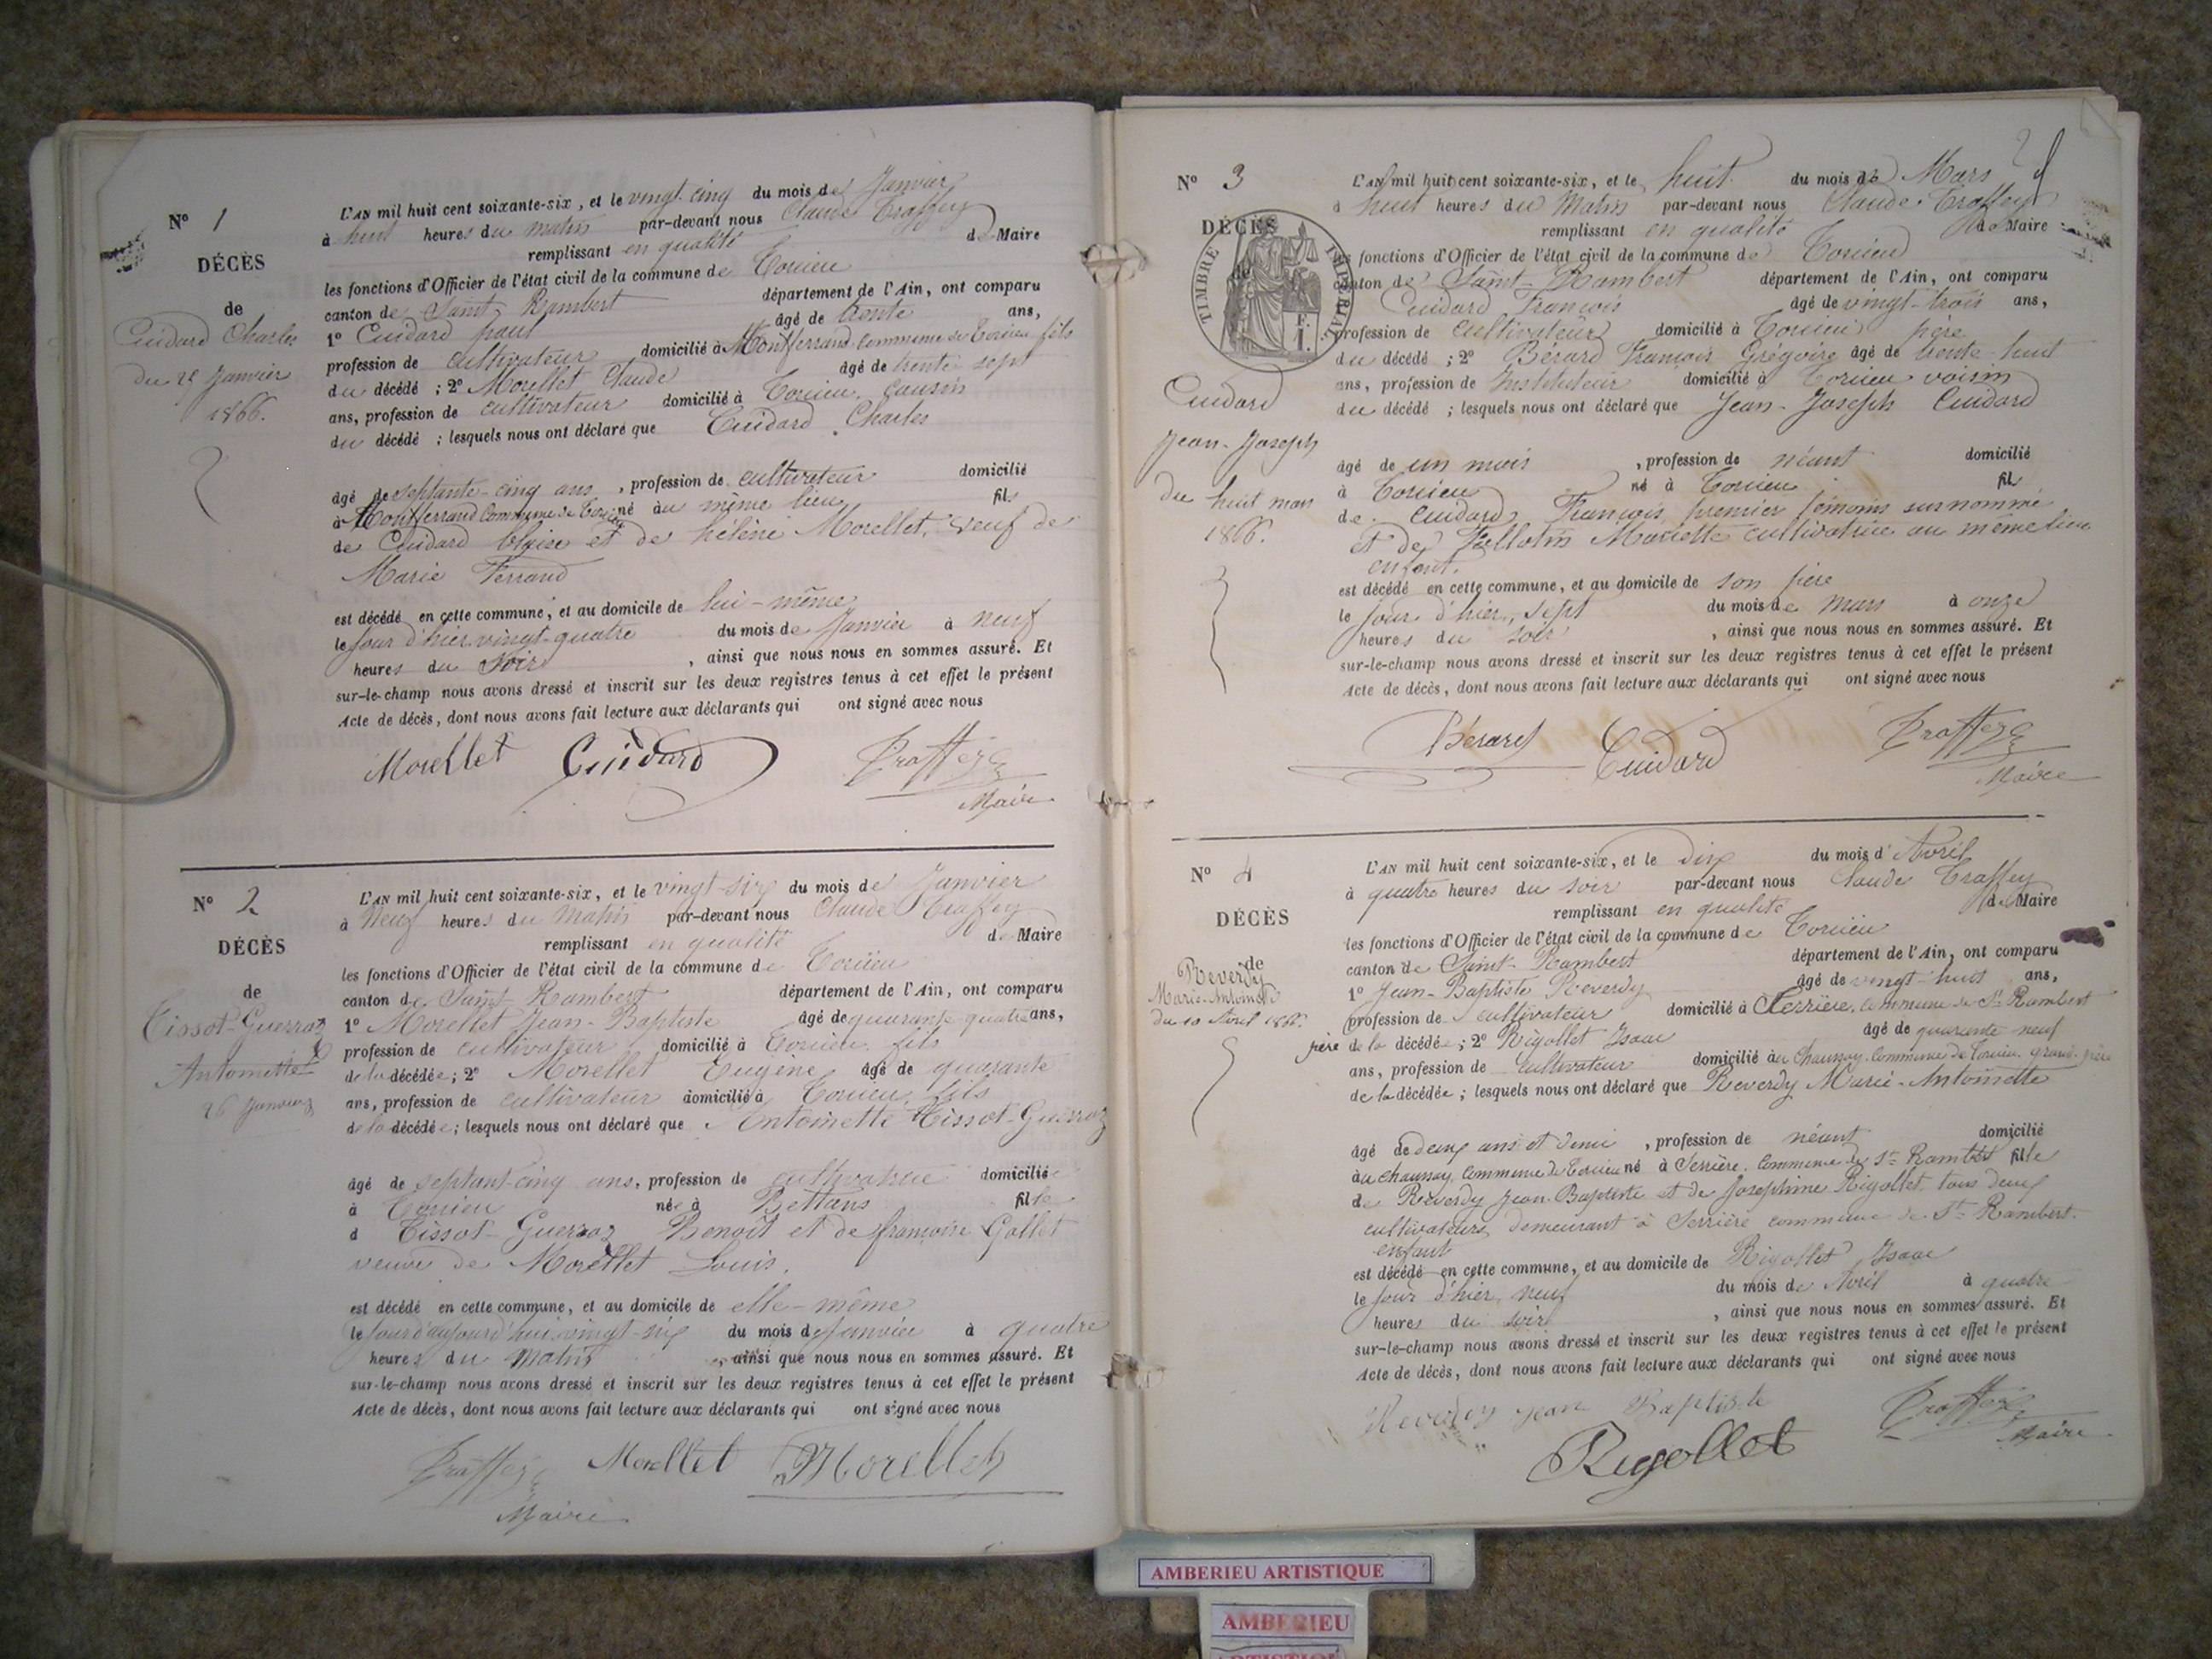 N° 1
DÉCÈS
de
Cuidard Charles
du 25 Janvier
1866.
L'AN mil huit cent soixante-six, et le vingt-cinq du mois de Janvier
à huit heures du matin par-devant nous Claude Traffey
remplissant en qualité de Maire
les fonctions d'Officier de l'état civil de la commune de Torcieu
canton de Saint Rambert département de l'Ain, ont comparu
1° Cuidard paul âgé de trente ans,
profession de cultivateur domicilié à Montferrand commune de Torcieu fils
du décédé ; 2° Morellet Claude âgé de trente sept
ans, profession de cultivateur domicilié à Torcieu, cousin
du décédé ; lesquels nous ont déclaré que Cuidard Charles
âgé de septante-cinq ans, profession de cultivateur domicilié
à Montferrand Commune de Torcieu né au même lieu fils
de Cuidard blaise et de hélène Morellet, veuf de
Marie Ferrand
est décédé en cette commune, et au domicile de lui-même
le jour d'hier vingt-quatre du mois de Janvier à neuf
heures du soir, ainsi que nous nous en sommes assuré. Et
sur-le-champ nous avons dressé et inscrit sur les deux registres tenus à cet effet le présent
Acte de décès, dont nous avons fait lecture aux déclarants qui ont signé avec nous
Morellet Cuidard Traffey
Maire
N° 2
DÉCÈS
de
Tissot-Guerraz
Antoinette
26 Janvier
L'AN mil huit cent soixante-six, et le vingt-six du mois de Janvier
à Neuf heures du Matin par-devant nous Claude Traffey
remplissant en qualité de Maire
les fonctions d'Officier de l'état civil de la commune de Torcieu
canton de Saint-Rambert département de l'Ain, ont comparu
1° Morellet Jean-Baptiste âgé de quarante quatre ans,
profession de cultivateur domicilié à Torcieu fils
de la décédée ; 2° Morellet Eugène âgé de quarante
ans, profession de cultivateur domicilié à Torcieu, fils
de la décédée ; lesquels nous ont déclaré que Antoinette Tissot-Guerraz
âgé de septant-cinq ans, profession de cultivatrice domicilié
à Torcieu née à Bettans fille
d Tissot-Guerraz Benoît et de françoise Gallet
veuve de Morellet Louis.
est décédé en cette commune, et au domicile de elle-même
le jour d'aujourd'hui vingt-six du mois de Janvier à quatre
heures du matin, ainsi que nous nous en sommes assuré. Et
sur-le-champ nous avons dressé et inscrit sur les deux registres tenus à cet effet le présent
Acte de décès, dont nous avons fait lecture aux déclarants qui ont signé avec nous
Traffey Morellet Morellet
Maire
N° 3
DÉCÈS
TIMBRE IMPÉRIAL
F. 1.
Cuidard
Jean-Joseph
du huit mars
1866.
L'AN mil huit cent soixante-six, et le huit du mois de Mars
à huit heures du Matin par-devant nous Claude Traffey
remplissant en qualité de Maire
les fonctions d'Officier de l'état civil de la commune de Torcieu
canton de Saint-Rambert département de l'Ain, ont comparu
Cuidard François âgé de vingt-trois ans,
profession de cultivateur domicilié à Torcieu père
du décédé ; 2° Bérard François Grégoire âgé de trente-huit
ans, profession de Instituteur domicilié à Torcieu voisin
du décédé ; lesquels nous ont déclaré que Jean-Joseph Cuidard
âgé de un mois, profession de néant domicilié
à Torcieu né à Torcieu fils
de Cuidard François premier témoins surnommé
et de Mariette cultivatrice au même lieu
enfant.
est décédé en cette commune, et au domicile de son père
le jour d'hier, sept du mois de mars à onze
heures du soir, ainsi que nous nous en sommes assuré. Et
sur-le-champ nous avons dressé et inscrit sur les deux registres tenus à cet effet le présent
Acte de décès, dont nous avons fait lecture aux déclarants qui ont signé avec nous
Bérard Cuidard Traffey
Maire
N° 4
DÉCÈS
de
Reverdy
Marie-Antoinette
du 10 Avril 1866.
L'AN mil huit cent soixante-six, et le dix du mois d'Avril
à quatre heures du soir par-devant nous Claude Traffey
remplissant en qualité de Maire
les fonctions d'Officier de l'état civil de la commune de Torcieu
canton de Saint-Rambert département de l'Ain, ont comparu
1° Jean-Baptiste Reverdy âgé de vingt-huit ans,
profession de cultivateur domicilié à Serrière, commune de St Rambert
père de la décédée ; 2° Rigollet Isaac âgé de quarante-neuf
ans, profession de cultivateur domicilié au Chaussay, Commune de Torcieu grand-père
de la décédée ; lesquels nous ont déclaré que Reverdy Marie-Antoinette
âgé de deux ans et demi, profession de néant domicilié
au chaussay, Commune de Torcieu né à Serrière, Commune de St Rambert fille
de Reverdy Jean-Baptiste et de Josephine Rigollet tous deux
cultivateurs demeurant à Serrière commune de St Rambert.
enfant
est décédé en cette commune, et au domicile de Rigollet Isaac
le jour d'hier, neuf du mois de Avril à quatre
heures du soir, ainsi que nous nous en sommes assuré. Et
sur-le-champ nous avons dressé et inscrit sur les deux registres tenus à cet effet le présent
Acte de décès, dont nous avons fait lecture aux déclarants qui ont signé avec nous
Reverdy Jean Baptiste Traffey
Rigollet Maire
AMBERIEU ARTISTIQUE
AMBERIEU
ARTISTIQUE